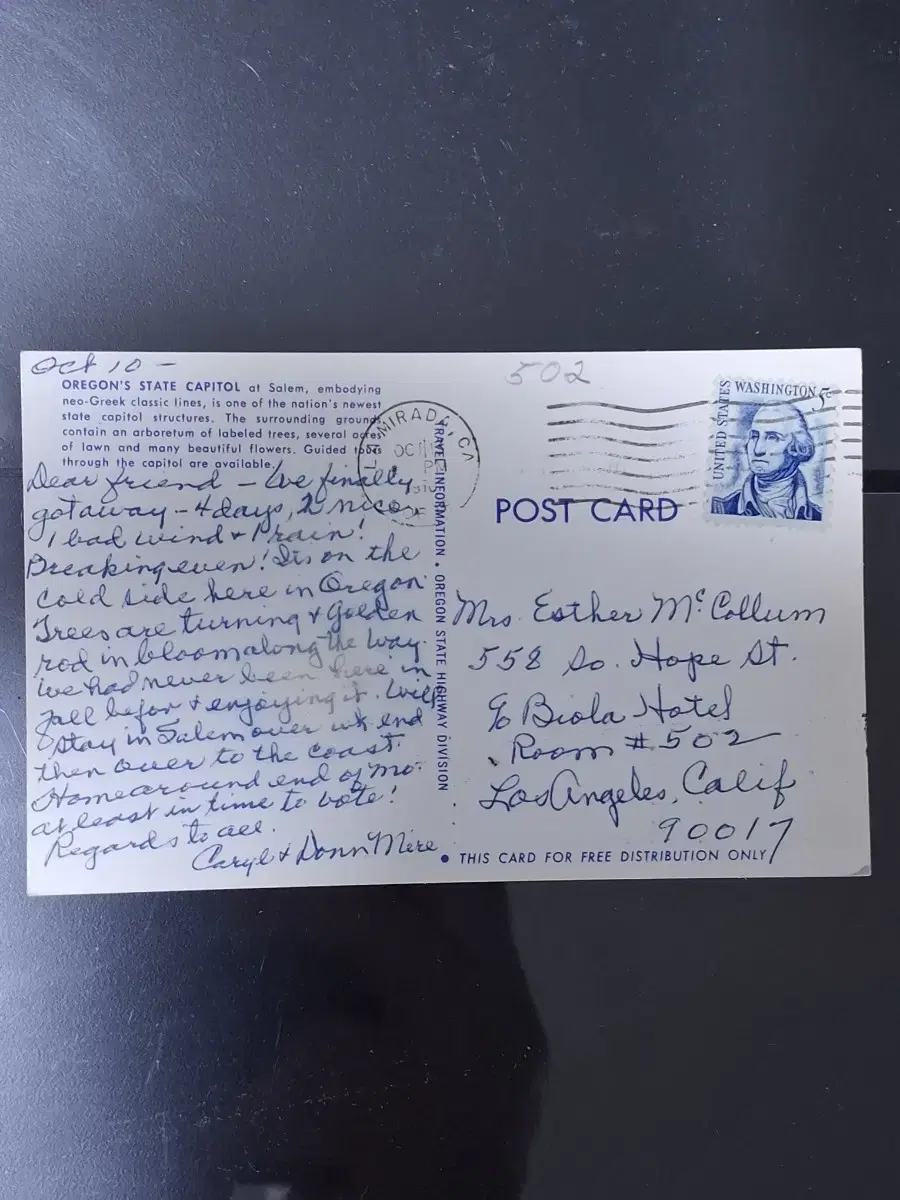 Oct 10 -
OREGON'S STATE CAPITOL at Salem, embodying
neo-Greek classic lines, is one of the nation's newest
state capitol structures. The surrounding grounds
contain an arboretum of labeled trees, several acres
of lawn and many beautiful flowers. Guided tours
through the capitol are available.
Dear friend - We finally
got away - 4 days, 2 nice,
1 bad wind + rain!
Breaking even! Its on the
cold side here in Oregon.
Trees are turning & Golden
rod in bloom along the way.
We had never been here in
fall befor & enjoying it. Will
stay in Salem over wk end
then over to the coast.
Home around end of mo.
at least in time to vote!
Regards to all.
Caryl & Donn
TRAVEL INFORMATION • OREGON STATE HIGHWAY DIVISION
502
MIRADA, CA
OCT
PM
UNITED STATES
WASHINGTON 5c
POST CARD
Mrs. Esther McCollum
558 So. Hope St.
℅ Biola Hotel
Room #502
Los Angeles, Calif
90017
• THIS CARD FOR FREE DISTRIBUTION ONLY